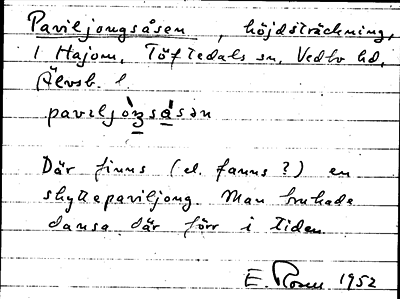 Paviljongsåsen, höjdsträckning,
i Hajom, Töftedals sn, Vedbo hd,
Älvsb. l.
Där finns (el. fanns?) en
skyttepaviljong. Man brukade
dansa där förr i tiden.
E. Rosen 1952